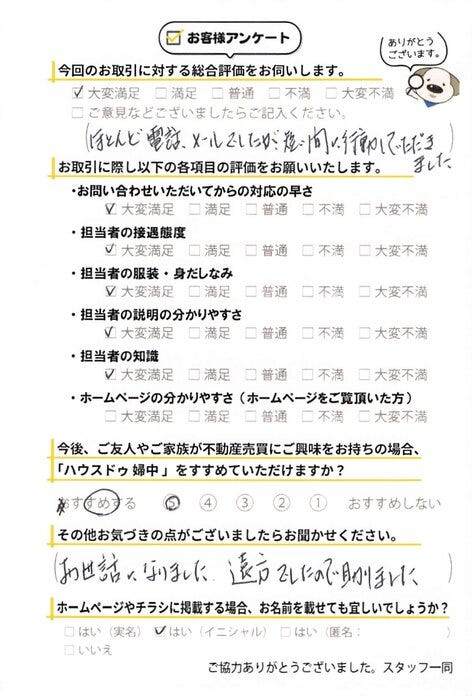 お客様アンケート
ありがとう
ございます。
今回のお取引に対する総合評価をお伺いします。
☑大変満足 □満足 □普通 □不満 □大変不満
□ご意見などございましたらご記入ください。
(ほとんど電話、メールでしたが短い間に行動していただき
ました
お取引に際し以下の各項目の評価をお願いいたします。
・お問い合わせいただいてからの対応の早さ
☑大変満足 □満足 □普通 □不満 □大変不満
・担当者の接遇態度
☑大変満足 □満足 □普通 □不満 □大変不満
・担当者の服装・身だしなみ
☑大変満足 □満足 □普通 □不満 □大変不満
・担当者の説明の分かりやすさ
☑大変満足 □満足 □普通 □不満 □大変不満
・担当者の知識
☑大変満足 □満足 □普通 □不満 □大変不満
・ホームページの分かりやすさ(ホームページをご覧頂いた方)
□大変満足 □満足 □普通 □不満 □大変不満
今後、ご友人やご家族が不動産売買にご興味をお持ちの場合、
「ハウスドゥ 婦中」をすすめていただけますか?
おすすめする ⑤ ④ ③ ② ① おすすめしない
その他お気づきの点がございましたらお聞かせください。
(お世話になりました 遠方でしたので助かりました)
ホームページやチラシに掲載する場合、お名前を載せても宜しいでしょうか?
□はい(実名) ☑はい(イニシャル) □はい(匿名: )
□いいえ
ご協力ありがとうございました。スタッフ一同